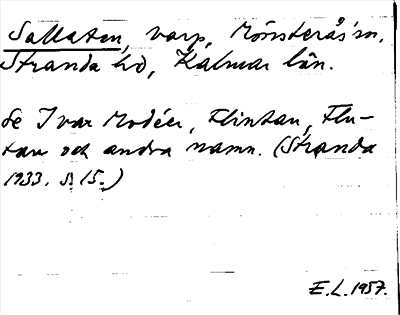 Sallaten, varp, Mönsterås sn,
Stranda hd, Kalmar län.
Se Ivar Modéer, Flintan, Flu-
tan och andra namn. (Stranda
1933. s. 15.)
E.L. 1957.